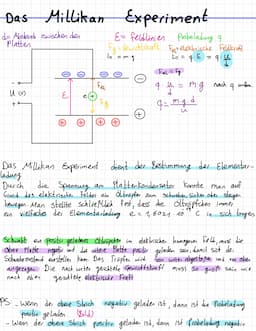 Das Millikan Experiment
d = Abstand zwischen den Platten
E = Feldlinien
Probeladung q
Fg = Gewichtskraft
Fel = elektrische Feldkraft
Fel = Fg
q · U/d = m · g
nach q
q = m·g·d/U
U (V)
E
Fel
Fg
Das Millikan Experiment dient der Bestimmung der Elementar-
ladung
Durch die Spannung am Plattenkondensator konnte man auf
Grund des elektrischen Feldes die Öltröpfchen zum schweben, sinken oder steigen
bewegen. Man stellte schließlich fest, dass die Öltröpfchen immer
ein vielfaches der Elementarladung e = 1,602 · 10^-19 C in sich tragen
Schwebt ein positiv geladenes Öltröpfchen im elektrischen homogenen Feld, muss die
obere Platte negativ und die untere Platte positiv geladen sein, damit sich der
Schwebezustand einstellen kann. Das Tröpfchen wird von unten abgestoßen und von oben
angezogen. Die nach unten gerichtete Gewichtskraft muss so groß sein wie
nach oben gerichtete elektrische Kraft
PS - Wenn der obere Strich negativ geladen ist, dann ist die Probeladung
positiv geladen (Bild)
- Wenn der obere Strich positiv geladen ist, dann ist die Probeladung negativ